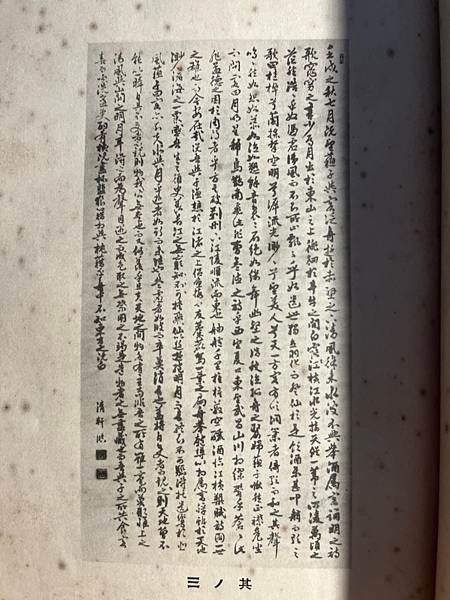 壬戌之秋七月既望蘇子與客泛舟遊於赤壁之下清風徐來水波不興舉酒屬客誦明月之詩
歌窈窕之章少焉月出於東山之上徘徊於斗牛之間白露橫江水光接天縱一葦之所如凌萬頃之
茫然浩浩乎如馮虛御風而不知所止飄飄乎如遺世獨立羽化而登仙於是飲酒樂甚扣舷而歌之
歌曰桂棹兮蘭槳擊空明兮泝流光渺渺兮予懷望美人兮天一方客有吹洞簫者倚歌而和之其聲
嗚嗚然如怨如慕如泣如訴餘音嫋嫋不絕如縷舞幽壑之潛蛟泣孤舟之嫠婦蘇子愀然正襟危坐
而問客曰月明星稀烏鵲南飛此非曹孟德之詩乎西望夏口東望武昌山川相繆鬱乎蒼蒼此
非孟德之困於周郎者乎方其破荊州下江陵順流而東也舳艫千里旌旗蔽空釃酒臨江橫槊賦詩固一世
之雄也而今安在哉況吾與子漁樵於江渚之上侶魚蝦而友麋鹿駕一葉之扁舟舉匏樽以相屬寄蜉蝣於天地
渺滄海之一粟哀吾生之須臾羨長江之無窮挾飛仙以遨遊抱明月而長終知不可乎驟得託遺響於悲
風蘇子曰客亦知夫水與月乎逝者如斯而未嘗往也盈虛者如彼而卒莫消長也蓋將自其變者而觀之則天地曾不
能以一瞬自其不變者而觀之則物與我皆無盡也而又何羨乎且夫天地之間物各有主苟非吾之所有雖一毫而莫取惟江上之
清風與山間之明月耳得之而為聲目遇之而成色取之無禁用之不竭是造物者之無盡藏也而吾與子之所共食客
喜而笑洗盞更酌肴核既盡杯盤狼藉相與枕藉乎舟中不知東方之既白
清軒
其ノ三